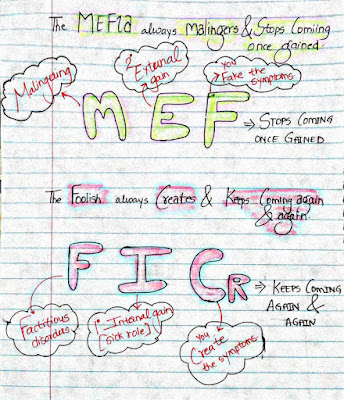 The MEFIA always Malingers & Stops Coming
once gained.
Malingering
2° External
gain
You
Fake the
symptoms
MEF
→ STOPS COMING
ONCE GAINED
The Foolish always Creates & Keeps Coming again
& again
FICR
→ KEEPS COMING
AGAIN &
AGAIN
Factitious
disorders
1° - Internal gain
[sick role]
You
Create
the symptoms